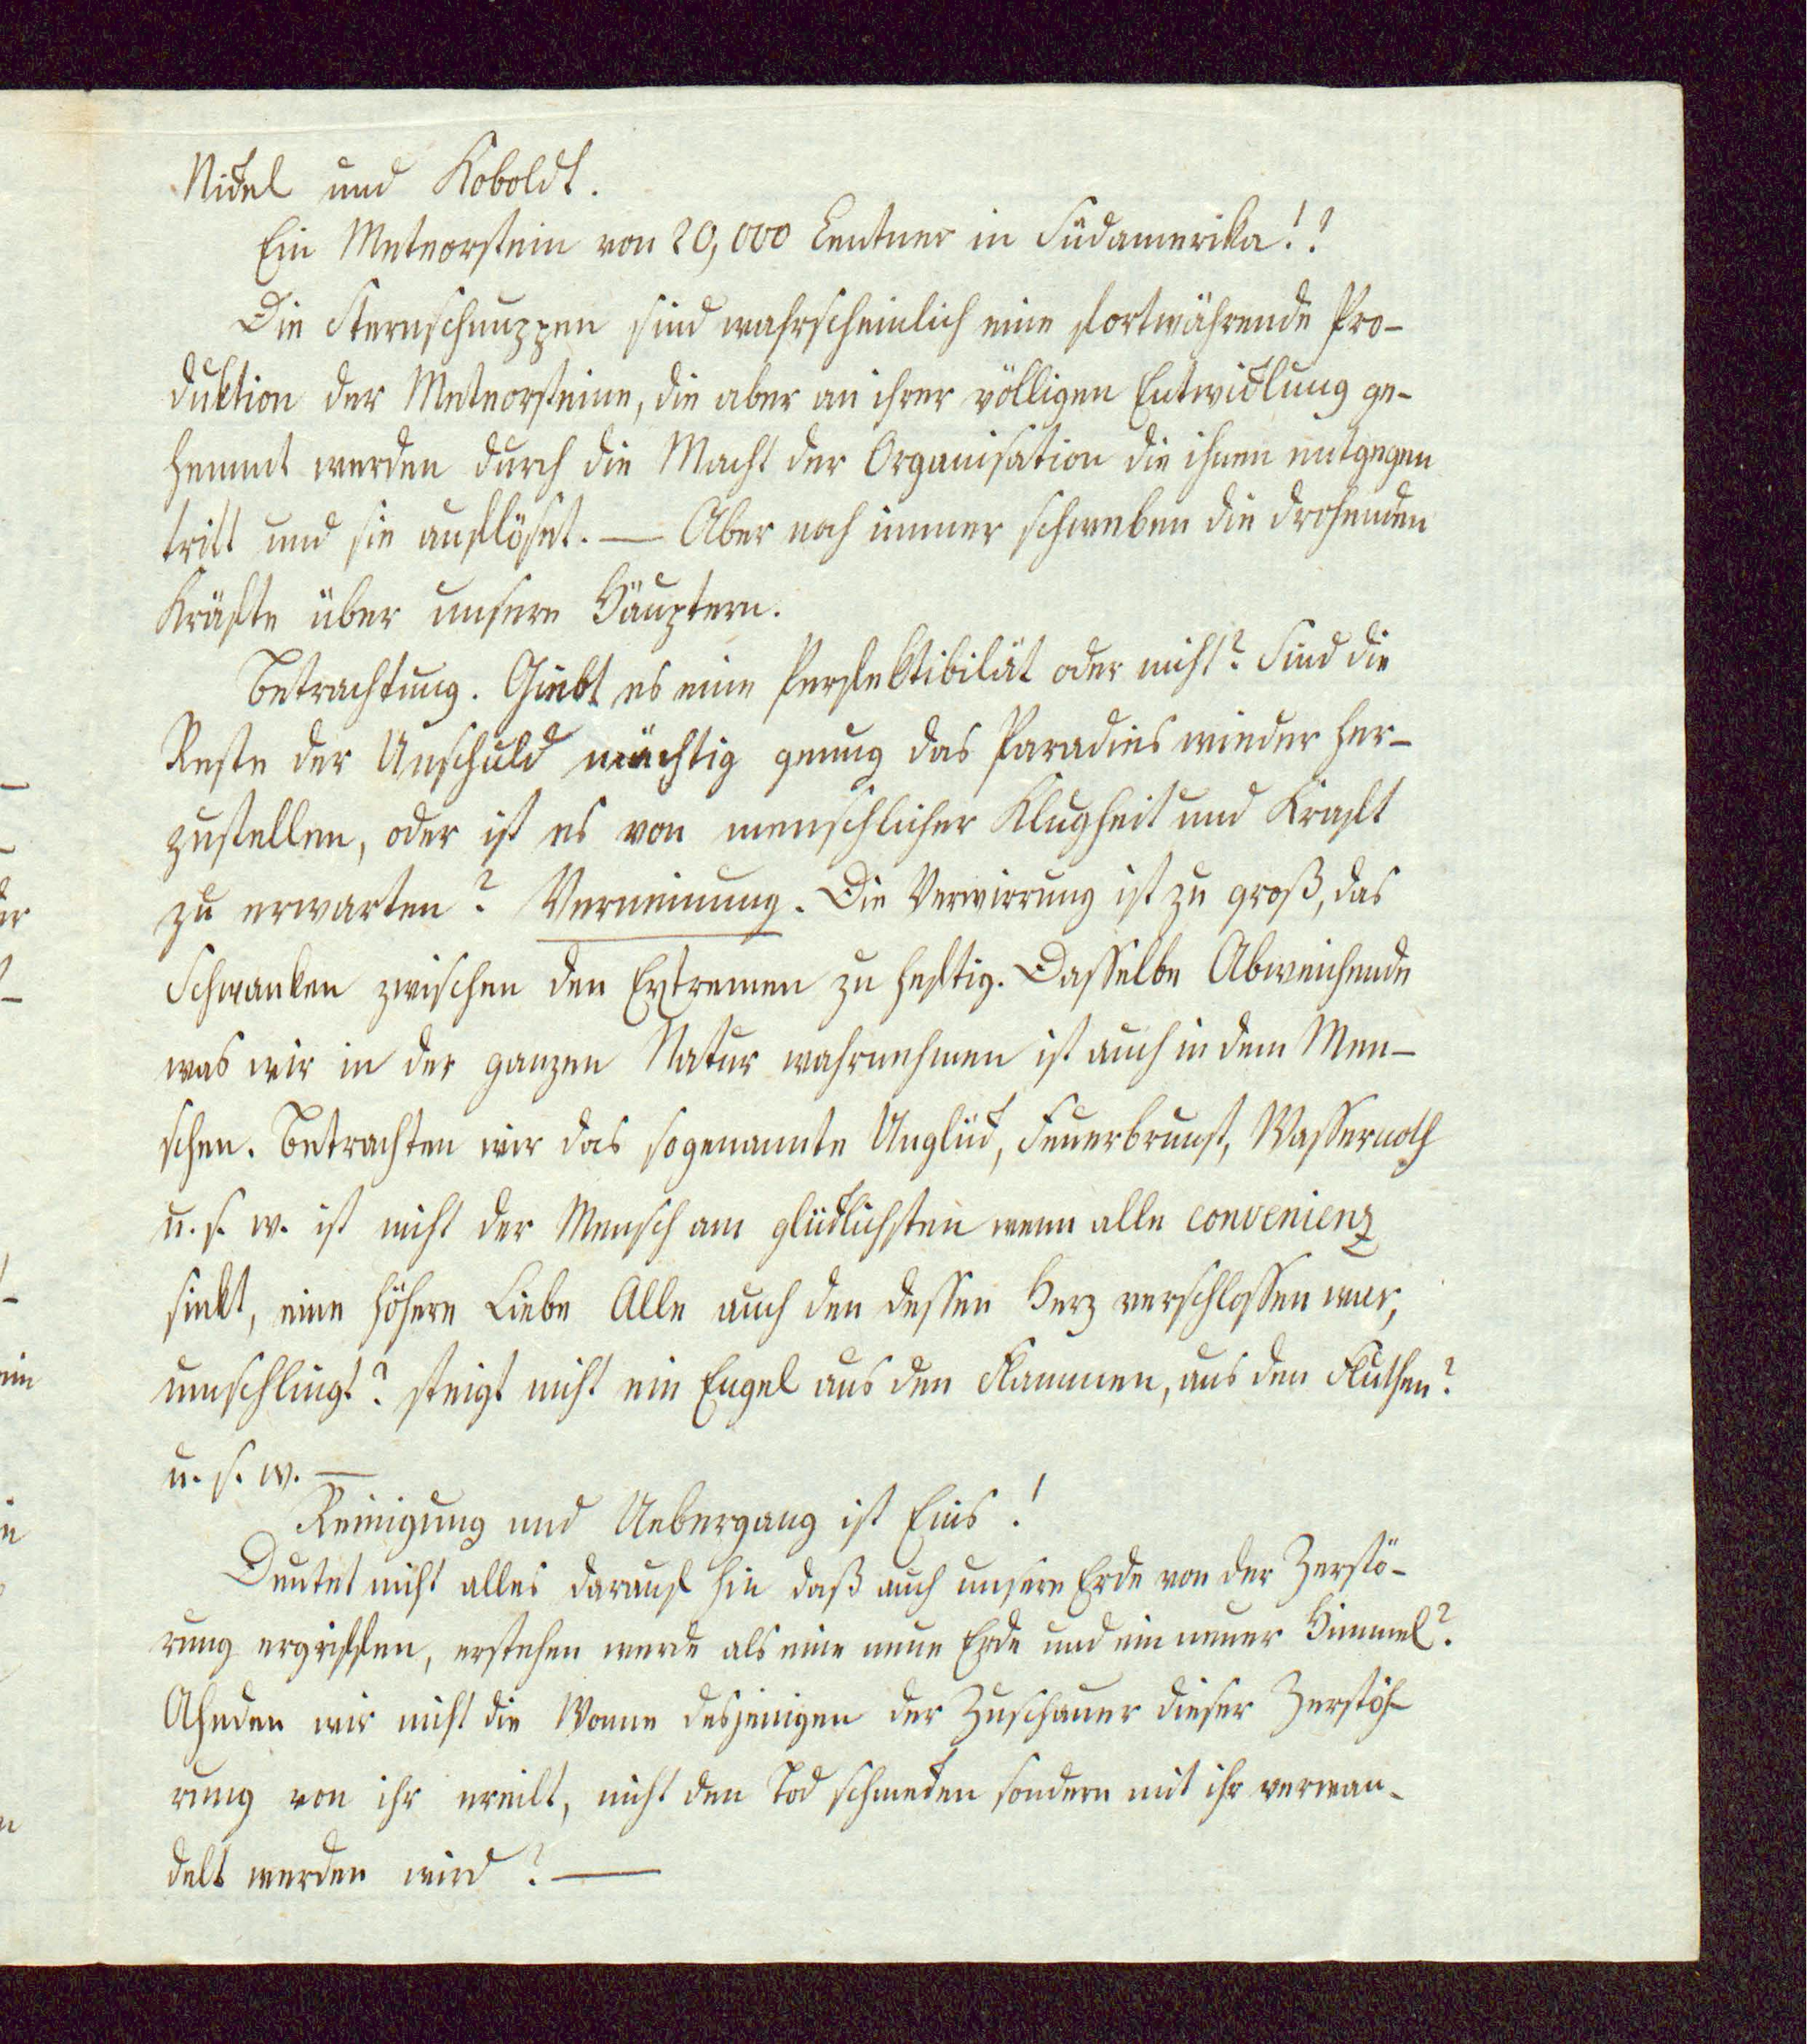 Nickel und Koboldt.
Ein Meteorstein von 20,000 Centner in Südamerika!!
Die Sternschnuppen sind wahrscheinlich eine fortwährende Pro-
duktion der Meteorsteine, die aber an ihrer völligen Entwicklung ge-
hemmt werden durch die Macht der Organisation die ihnen entgegen
tritt und sie auflöset. — Aber noch immer schweben die drohenden
Kräfte über unsern Häuptern.
Betrachtung. Giebt es eine Perfektibilität oder nicht? Sind die
Reste der Unschuld mächtig genug das Paradies wieder her-
zustellen, oder ist es von menschlicher Klugheit und Kraft
zu erwarten? Verneinung. Die Verwirrung ist zu groß, das
Schwanken zwischen den Extremen zu heftig. Dasselbe Abweichende
was wir in der ganzen Natur wahrnehmen ist auch in dem Men-
schen. Betrachten wir das sogenannte Unglück, Feuerbrunst, Wassernoth
u. s. w. ist nicht der Mensch am glücklichsten wenn alle convenienz
sinkt, eine höhere Liebe Alle auch den dessen Herz verschlossen war,
umschlingt? steigt nicht ein Engel aus den Flammen, aus den Fluthen?
u. s. w. —
Reinigung und Uebergang ist Eins!
Deutet nicht alles darauf hin daß auch unsere Erde von der Zerstö-
rung ergriffen, erstehen werde als eine neue Erde und ein neuer Himmel?
Ahnden wir nicht die Wonne desjenigen der Zuschauer dieser Zerstöh-
rung von ihr ereilt, nicht den Tod schmecken sondern mit ihr verwan-
delt werden wird? —